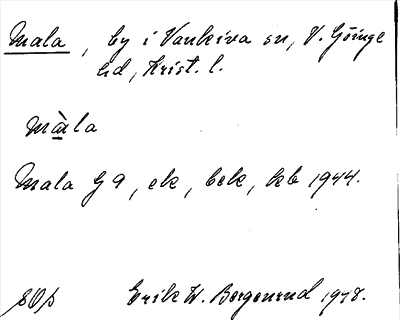 Mala, by i Vankiva sn, V. Göinge
hd, Krist. l.
màla
Mala G 9, ek, bek, kb 1944.
SOÞ Erik W. Bergenrud 1948.